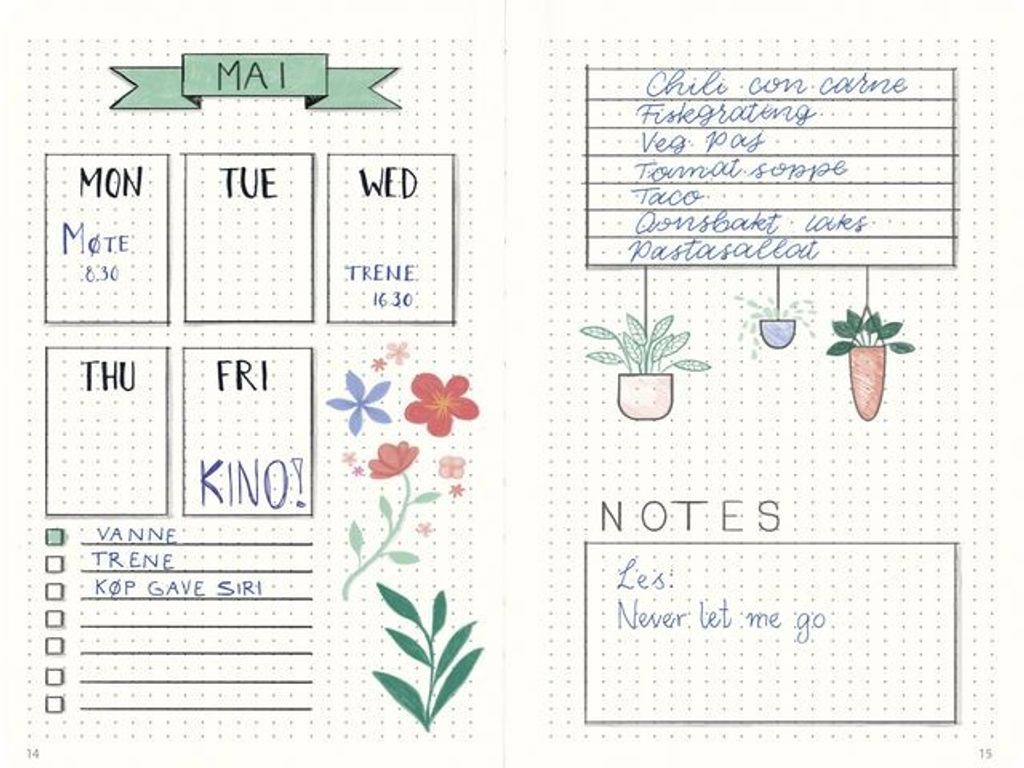 MAI
MON
MØTE
8.30
TUE
WED
TRENE
16.30
THU
FRI
KINO!
VANNE
TRENE
KØP GAVE SIRI
14
Chili con carne
Fiskegrateng
Veg. Pas
Tomat soppe
Taco
Oonsbakt laks
Pastasallat
NOTES
Les:
Never let me go
15